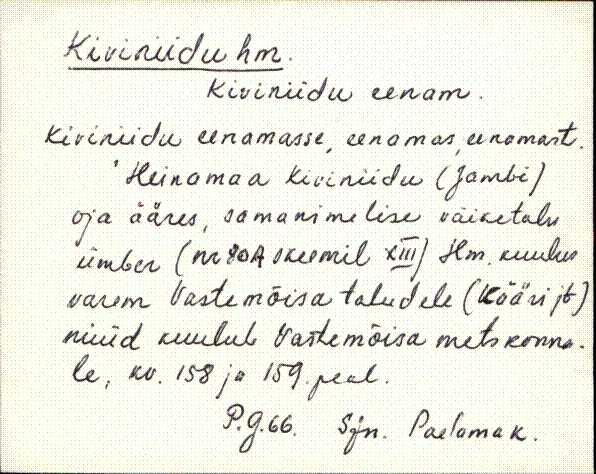 Kiviniidu hm.
Kiviniidu eenam.
Kiviniidu eenamasse, eenamas, eenamast.
Heinamaa Kiviniidu (Jambi)
oja ääres, samanimelise väiketalu
ümber (nr 80A skeemil XIII) Hm. kuulus
varem Vastemõisa taludele (Kääri jt)
nüüd kuulub Vastemõisa metskonna-
le, kv. 158 ja 159 peal.
P.g.66. Sjn. Paelamak.